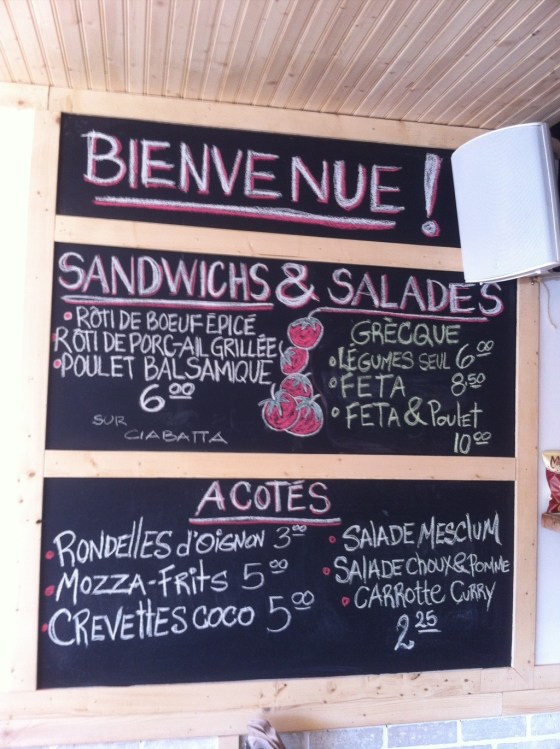 BIENVENUE!
SANDWICHS & SALADES
• RÔTI DE BOEUF ÉPICÉ
• RÔTI DE PORC-AIL GRILLÉE
• POULET BALSAMIQUE
6.00
SUR
CIABATTA
GRÈCQUE
• LÉGUMES SEUL 6.00
• FETA 8.50
• FETA & POULET
10.00
ACOTÉS
• RONDELLES d'OIGNON 3.00
• MOZZA-FRITS 5.00
• CREVETTES COCO 5.00
• SALADE MESCLUM
• SALADE CHOUX & POMME
• CARROTTE CURRY
2.25